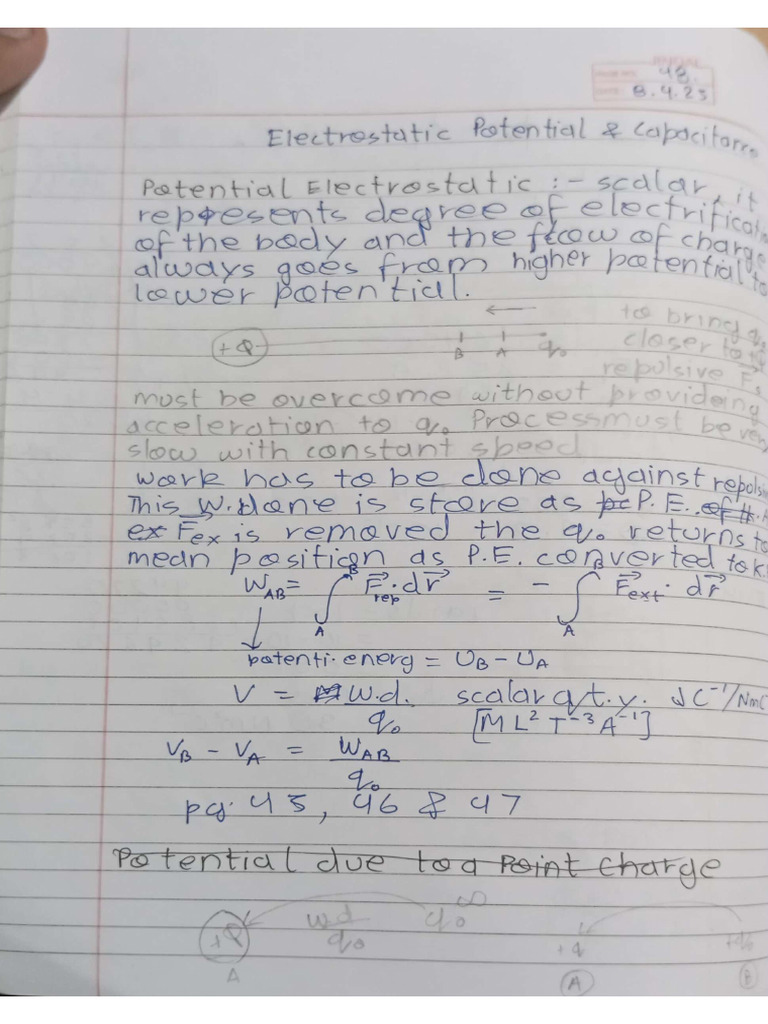 48.
8.4.23
Electrostatic Potential & Capacitors
Potential Electrostatic :- scalar, it
represents degree of electrificati
of the body and the flow of charge
always goes from higher potential to
lower potential.
+Q B A q₀ to bring q₀
closer to
repulsive F
must be overcome without provideing
acceleration to q₀ Process must be very
slow with constant speed
work has to be done against repulsi
This W.done is store as P.E.
F⃗ex is removed the q₀ returns to
mean position as P.E. converted to K.
W_AB = ∫_A^B F⃗_rep · dr⃗ = - ∫_A^B F⃗_ext · dr⃗
potenti. energ = U_B - U_A
V = W.d./q₀ scalar qt.y. JC⁻¹/NmC
[ML²T⁻³A⁻¹]
V_B - V_A = W_AB/q₀
pg. 45, 46 & 47
Potential due to a Point Charge
+Q wd/q₀ q₀ ∞ +q +q₀
A A B